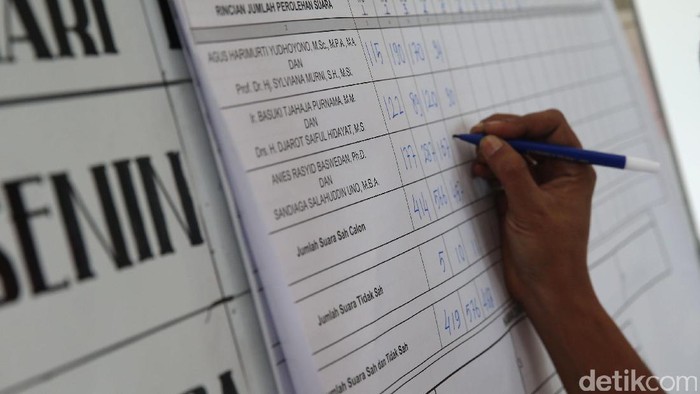 HARI
SENIN
RINCIAN JUMLAH PEROLEHAN SUARA
AGUS HARIMURTI YUDHOYONO, M.Sc., M.P.A., M.A.
DAN
Prof. Dr. Hj. SYLVIANA MURNI, S.H., M.Si.
115 190 170
Ir. BASUKI TJAHAJA PURNAMA, M.M.
DAN
Drs. H. DJAROT SAIFUL HIDAYAT, M.S
122 89 120
ANIES RASYID BASWEDAN, Ph.D.
DAN
SANDIAGA SALAHUDDIN UNO, M.B.A.
177 287
Jumlah Suara Sah Calon
414 566
Jumlah Suara Tidak Sah
5 10
Jumlah Suara Sah dan Tidak Sah
419 576
detikcom